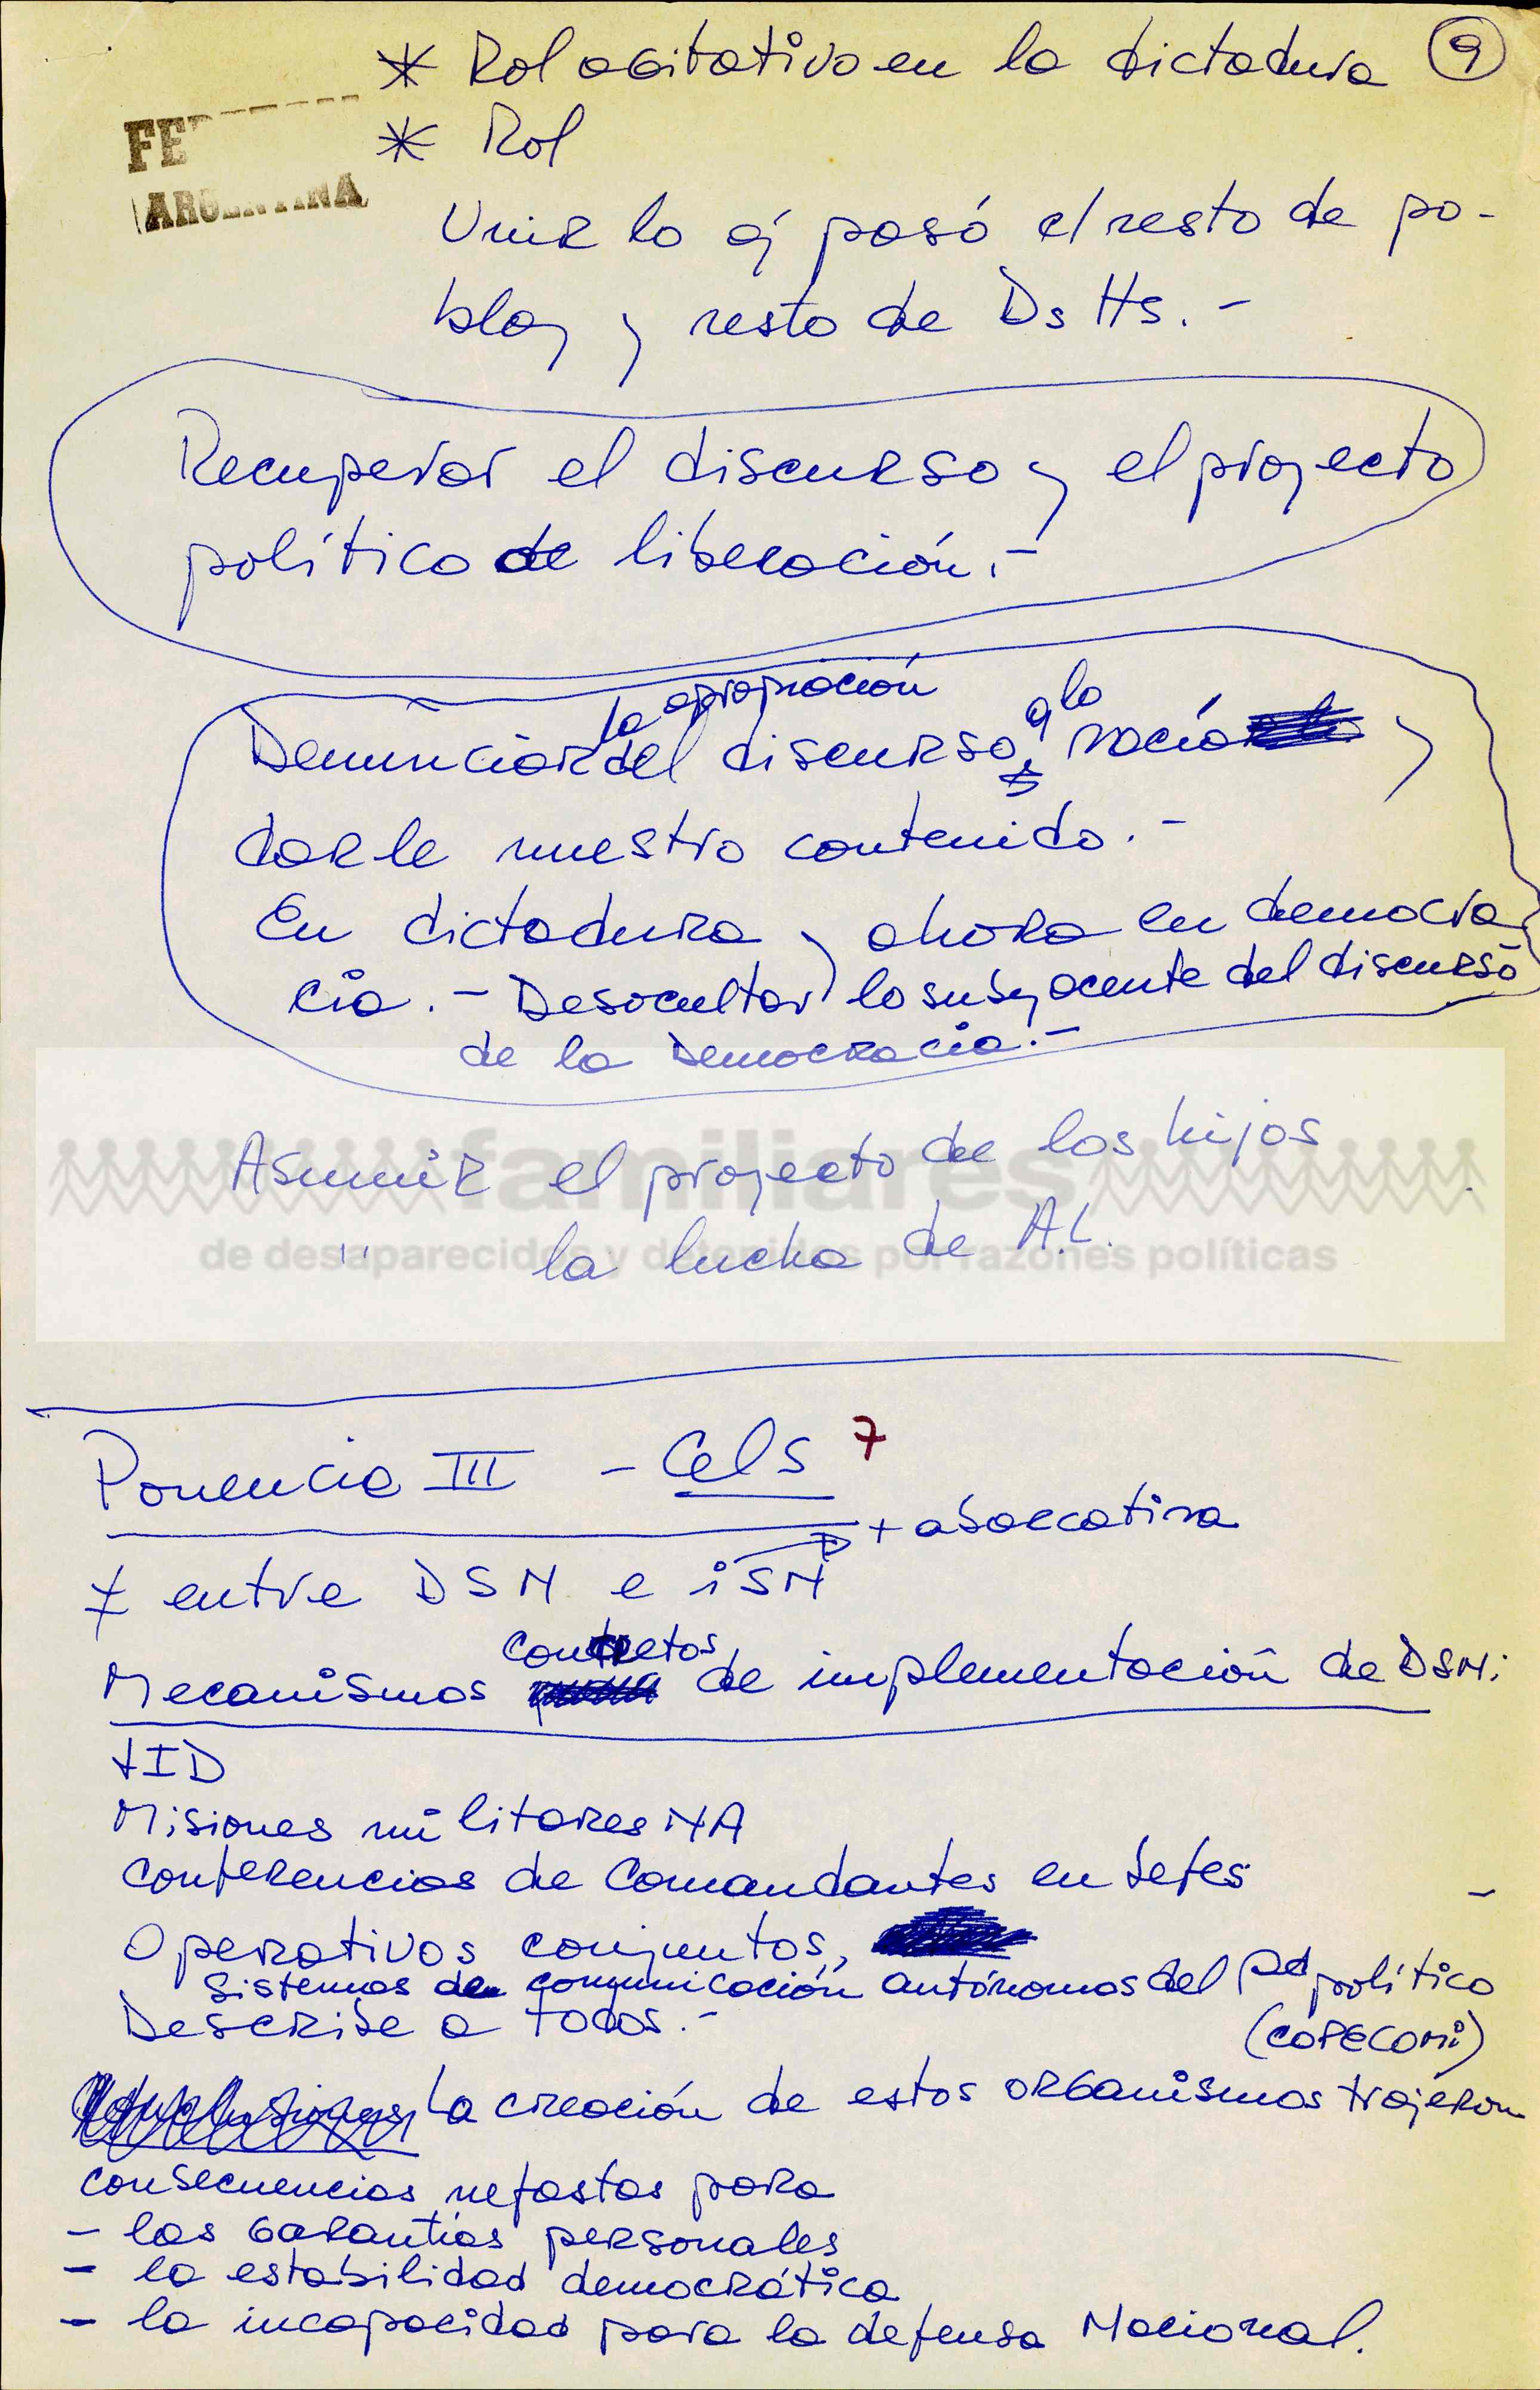 * Rol agitativo en la dictadura 9
* Rol
FE
ARGENTINA
Unir lo q' pasó c/ resto de po-
blaç y resto de Ds Hs. -
Recuperar el discurso y el proyecto
político de liberación. -
la apropiación
Denunciar del discurso, a lo vacío y
darle nuestro contenido. -
En dictadura y ahora en democra
cia. - Desocultar lo subyacente del discurso
de la Democracia. -
familiares
de desaparecidos y detenidos por razones políticas
Asumir el proyecto de los hijos
" la lucha de A.L.
Ponencia III - Cels 7
+ abarcativa
≠ entre DSN e iSN
concretos
Mecanismos de implementación de DSN:
JID
Misiones militares NA
Conferencias de Comandantes en Jefes
Operativos conjuntos,
Sistemas de comunicación autónomos del Pd político
Describe a todos. - (COPECOMI)
La creación de estos organismos trajeron
consecuencias nefastas para
- las garantías personales
- la estabilidad democrática
- la incapacidad para la defensa Nacional.